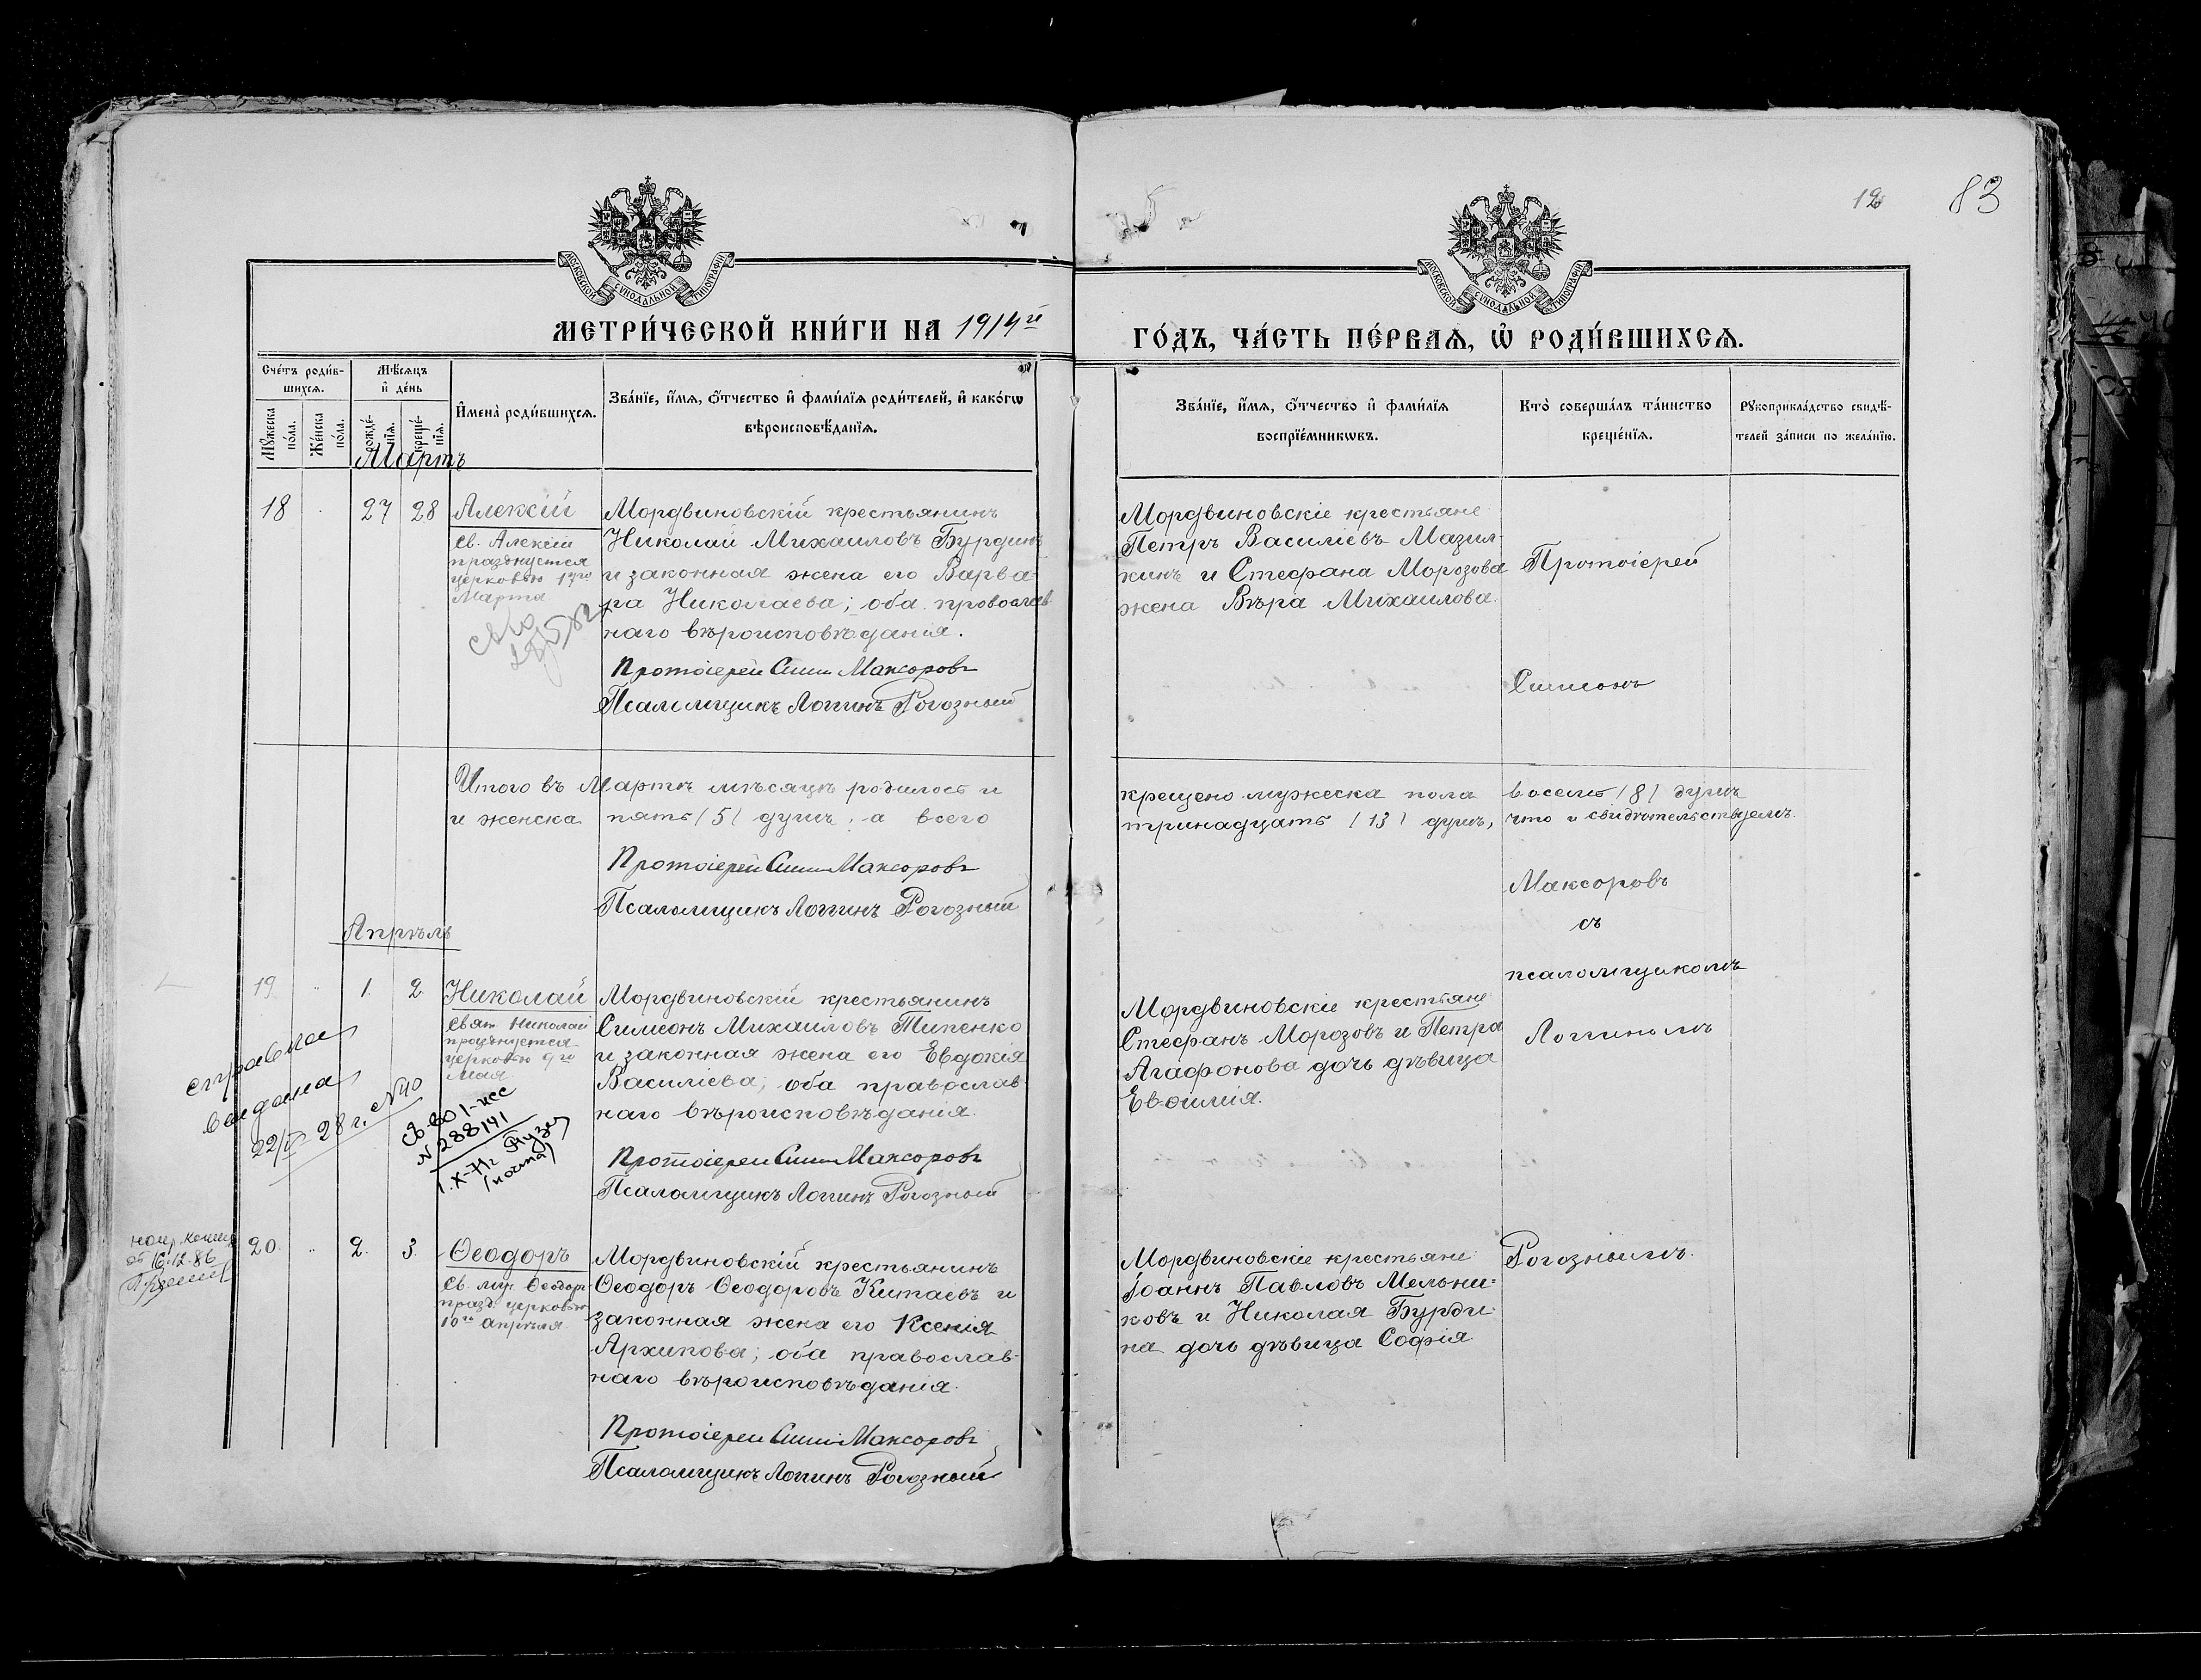 83
МОСКОВСКОЙ СѴНОДАЛЬНОЙ ТИПОГРАФІИ
МОСКОВСКОЙ СѴНОДАЛЬНОЙ ТИПОГРАФІИ
МЕТРИ́ЧЕСКОЙ КНИ́ГИ НА 1914й
ГО́ДЪ, ЧА́СТЬ ПЕ́РВАѦ, Ѡ҆ РОДИ́ВШИХСѦ.
Сче́тъ роди́в-
шихсѧ.
Мꙋ́жеска
по́ла.
Же́нска
по́ла.
Мѣ́сѧцъ
и҆ де́нь
рожде́-
нїѧ.
креще́-
нїѧ.
И҆мена̀ роди́вшихсѧ.
Зва́нїе, и҆́мѧ, ѻ҆́тчество и҆ фами́лїѧ роди́телей, и҆ како́гѡ
вѣроисповѣ́данїѧ.
Зва́нїе, и҆́мѧ, ѻ҆́тчество и҆ фами́лїѧ
воспрїе́мникѡвъ.
Кто̀ соверша́лъ та́инство
креще́нїѧ.
Рꙋкоприкла́дство свидѣ́-
телей за́писи по жела́нїю.
Мартъ
18
27
28
Алексій
Св. Алексій
празднуется
церковью 17го
Марта
Мордвиновскій крестьянинъ
Николай Михаиловъ Бурдинъ
и законная жена его Варва-
ра Николаева; оба провослав-
наго вѣроисповѣданія.
Протоіерей Сим Максоровъ
Псаломщикъ Логгинъ Рогозный
Мордвиновскіе крестьяне
Петръ Василіевъ Мазил-
кинъ и Стефана Морозова
жена Вѣра Михаилова.
Протоіерей
Симеонъ
Итого въ Мартѣ мѣсяцѣ родилось и
и женска пять /5/ душъ, а всего
крещено мужеска пола восемь /8/ душъ
тринадцать /13/ душъ, что и свидѣтельствуемъ.
Протоіерей Сим Максоровъ
Псаломщикъ Логгинъ Рогозный
Максоровъ
съ
псаломщикомъ
Логгиномъ
Апрѣль
19.
1.
2.
Николай
Свят Николай
празднуется
церковью 9го
Мая.
Мордвиновскій крестьянинъ
Симеонъ Михаиловъ Типенко
и законная жена его Евдокія
Василіева; оба православ-
наго вѣроисповѣданія.
Протоіерей Сим Максоровъ
Псаломщикъ Логгинъ Рогозный
Мордвиновскіе крестьяне
Стефанъ Морозовъ и Петра
Агафонова дочь дѣвица
Евфимія.
справка
выдана
22/V 28 г. №40
св-во 1-
№ 288141
1.X-71г
20.
2.
3.
Ѳеодоръ
Св. муч. Ѳеодоръ
празд. церковью
10го апрѣля.
Мордвиновскій крестьянинъ
Ѳеодоръ Ѳеодоровъ Китаевъ и
законная жена его Ксенія
Архипова; оба православ-
наго вѣроисповѣданія.
Протоіерей Сим Максоровъ
Псаломщикъ Логгинъ Рогозный
Мордвиновскіе крестьяне
Іоаннъ Павловъ Мельни-
ковъ и Николая Бурди-
на дочь дѣвица Софія
Рогознымъ.
от 16.12.86